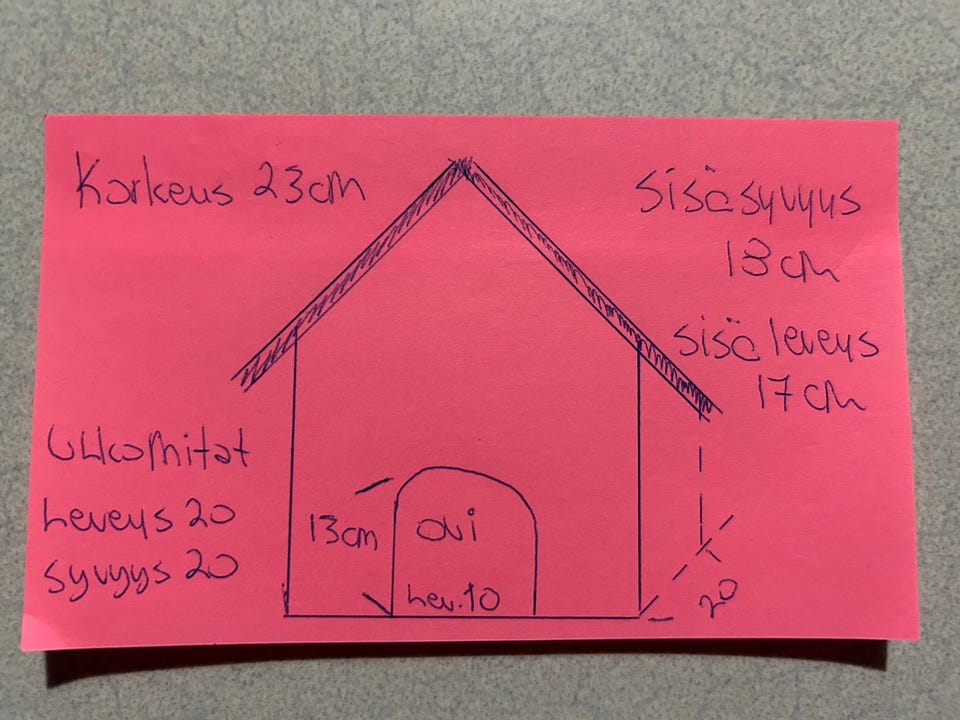 Korkeus 23cm
sisäsyvyys
18cm
sisäleveys
17cm
Ulkomitat
Leveys 20
syvyys 20
13cm
ovi
Lev. 10
20